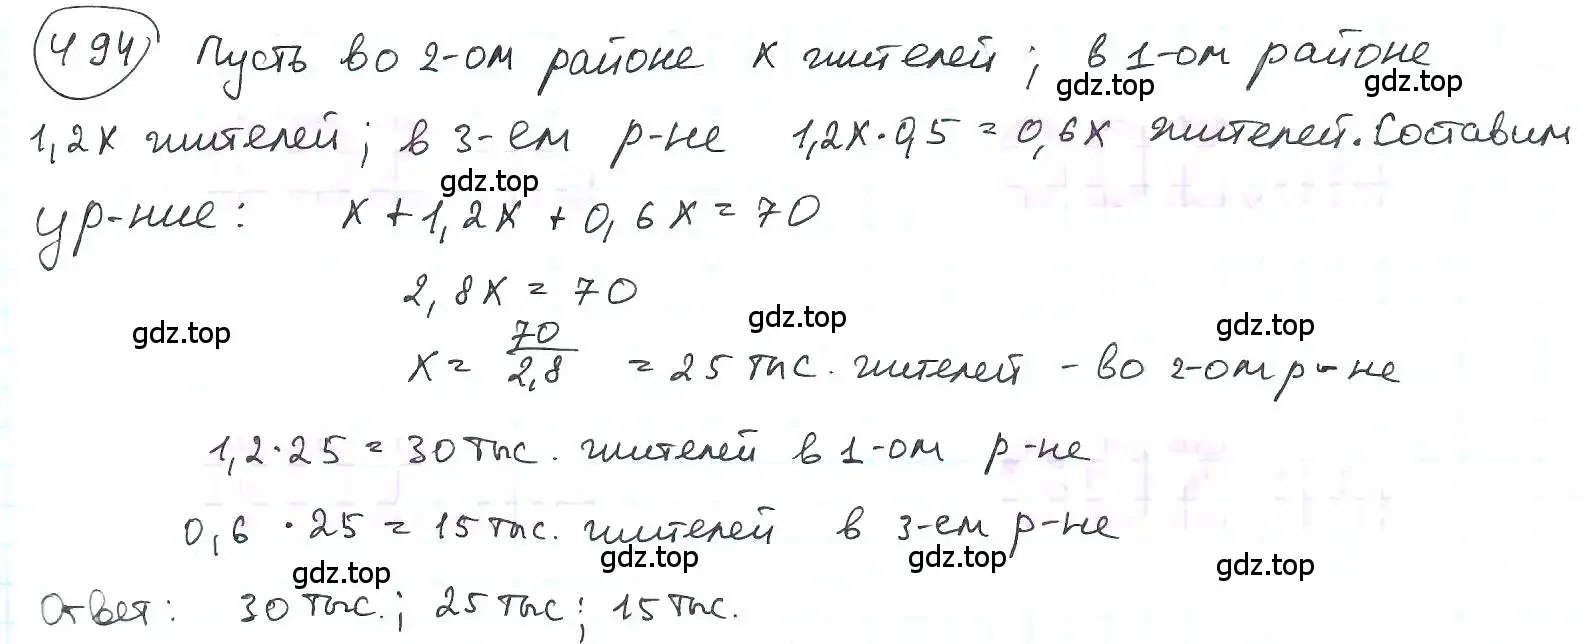 494 Пусть во 2-ом районе x жителей; в 1-ом районе
gdz.top gdz.top
1,2x жителей; в 3-ем р-не 1,2x·0,5 = 0,6x жителей. Составим
gdz.top
ур-ние: x + 1,2x + 0,6x = 70
2,8x = 70
gdz.top gdz.top gdz.top
x = 70/2,8 = 25 тыс. жителей - во 2-ом р-не
1,2·25 = 30 тыс. жителей в 1-ом р-не
0,6 · 25 = 15 тыс. жителей в 3-ем р-не
gdz.top gdz.top gdz.top gdz.top
Ответ: 30 тыс.; 25 тыс; 15 тыс.